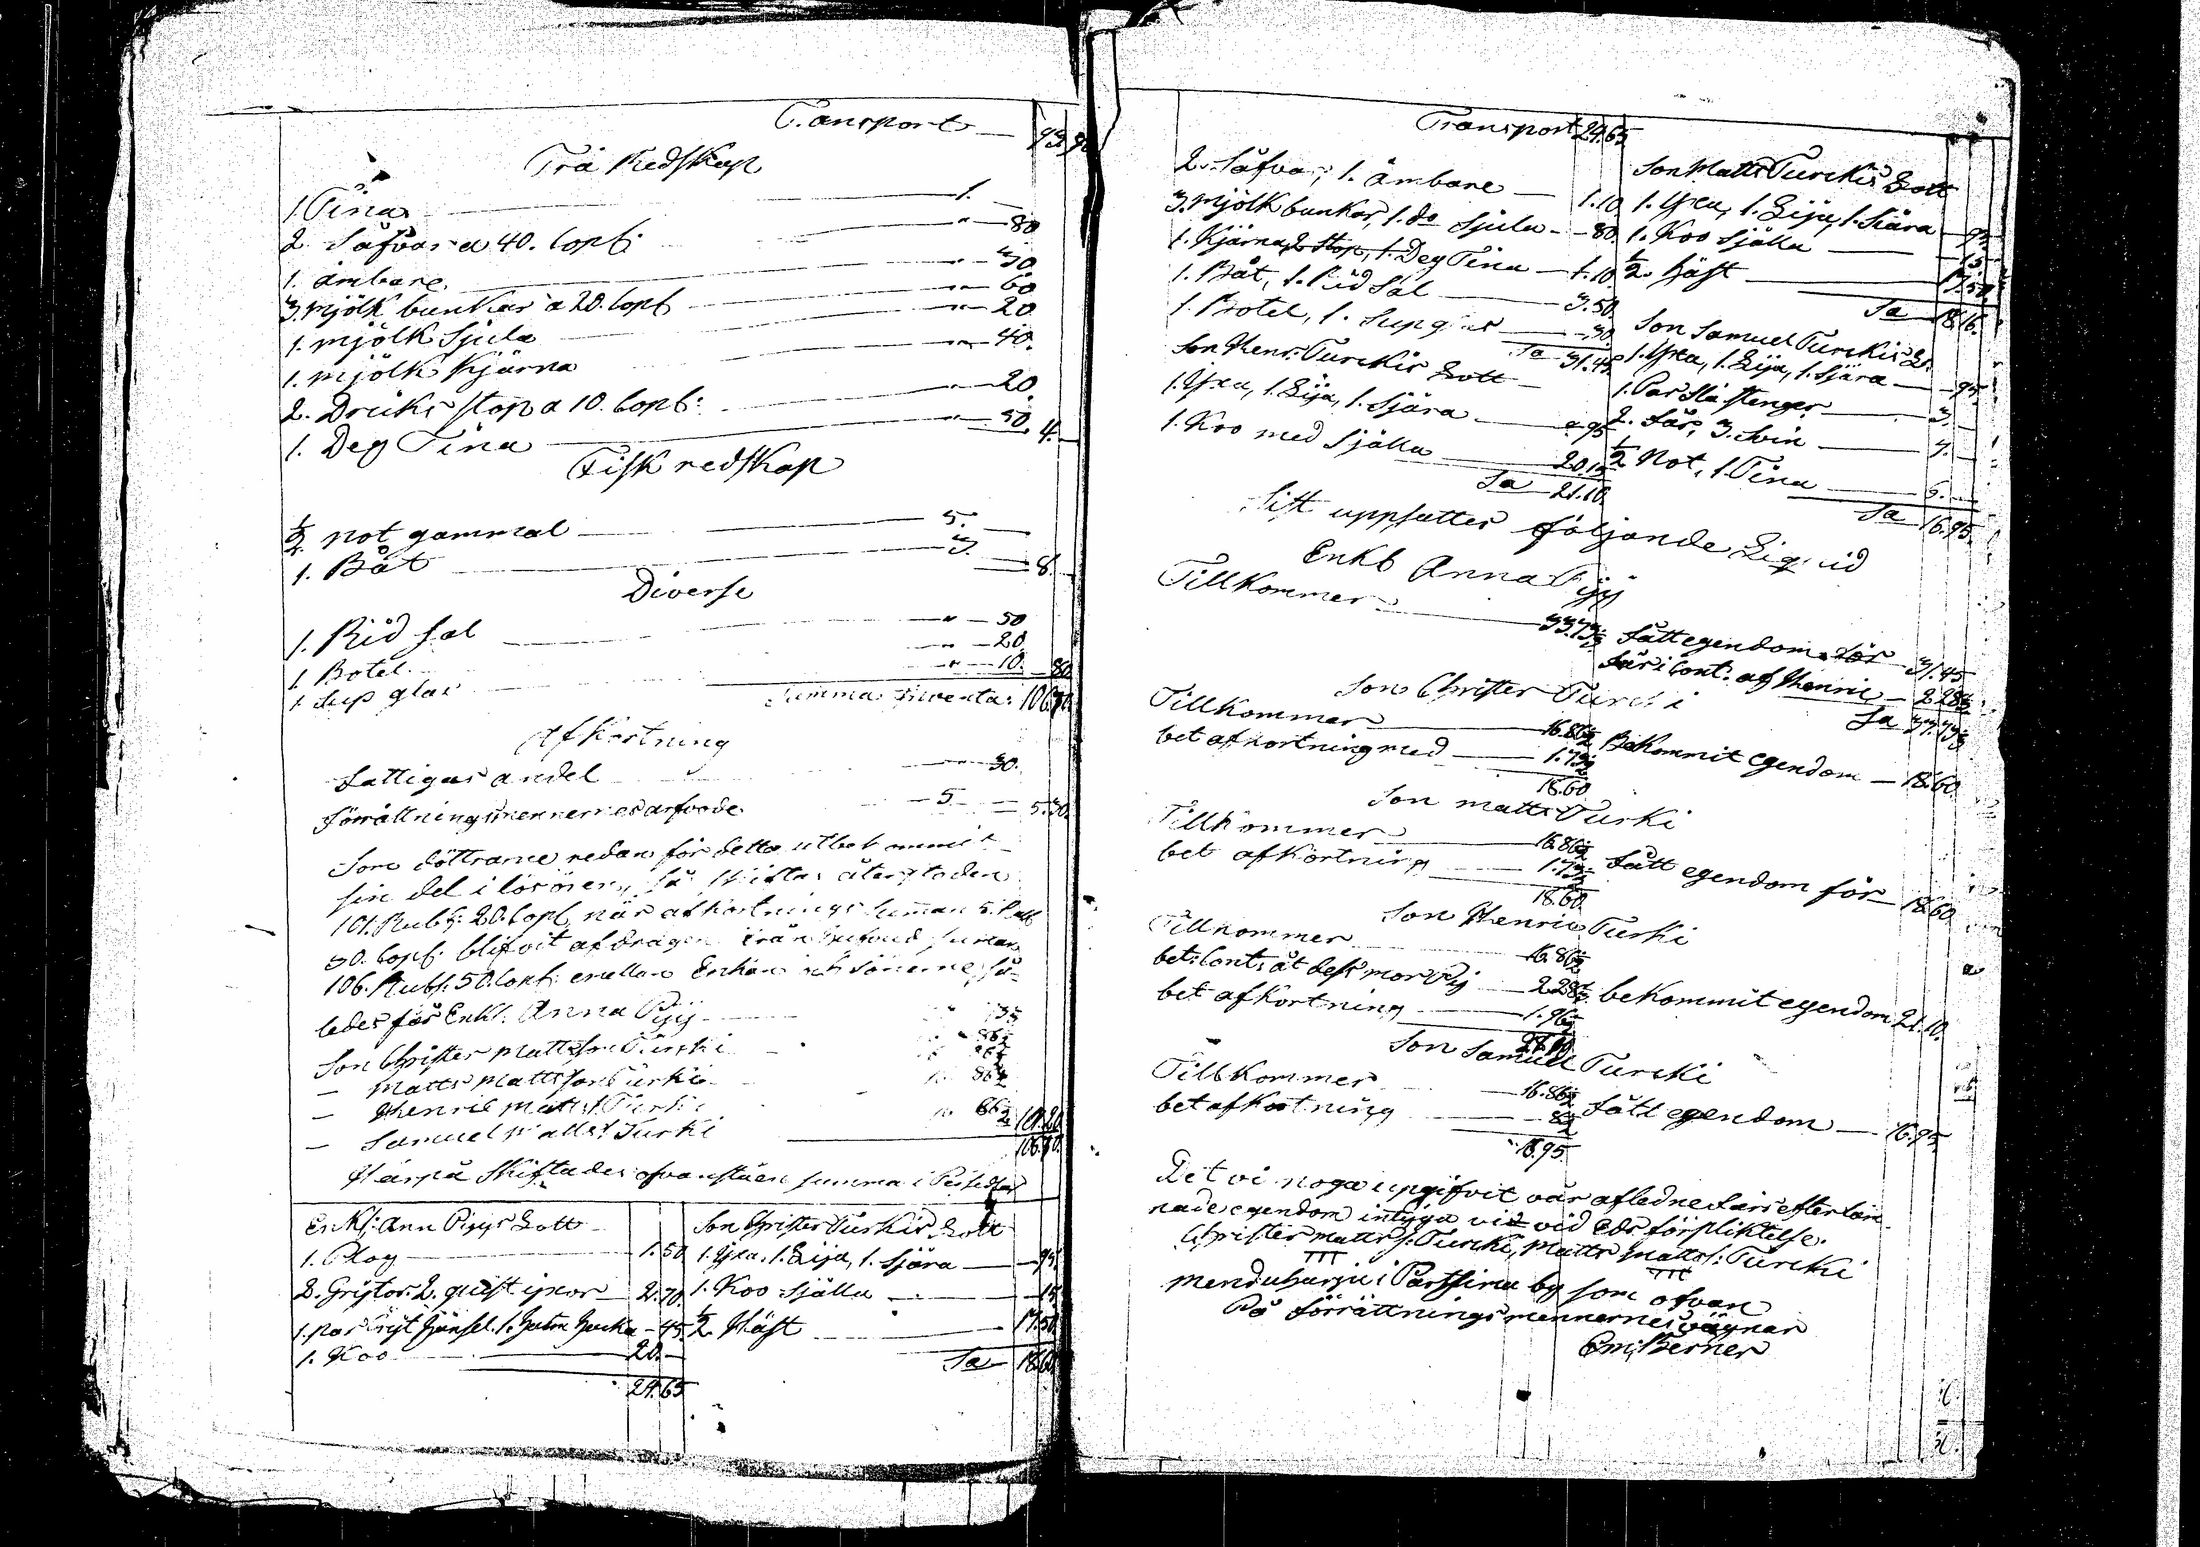 Transport — 93.90
Trä Redskap
1. Tina — 1. —
2. Såfvar a 40. Cop: — " — 80
1. ämbare — " — 30
3. mjölk bunkar a 20. Cop: — " — 60
1. mjölk Sjula — " — 20
1. mjölk Kjärna — " — 40.
2. Driks stop a 10. Cop: — " — 20
1. Deg Tina — " — 50. 4. —
Fisk redskap
1/2 not gammal — 5. —
1. Båt — 3. — 8. —
Diverse
1. Rid sal — " — 50
1 Botel — " — 20
1. Sup glas — " — 10. — 80
Summa Inventa: 106.70.
Afkortning
Fattigas andel — 30.
förrättningsmennernes arfvode — 5. — 5.30.
Som döttrarne redan för detta utbekommit
sin del i lösören, så skiftas återstoden
101. Rub: 20. Cop: när afkortnings summan 5. Rub
30. Cop: blifvit afdragen från hufvud summan
106. Rub: 50. Cop: emellan Enkan och sönerne, så-
ledes för Enk: Anna Pijj
Son Christer Mattsson Turki — 86 1/2
— Matts Mattsson Turki — 86 1/2
— Henric Matts: Turki — 86 1/2
— Samuel Matts: Turki — 86 1/2 101.20
106.50.
Härpå Skiftades ofvanstående summa i Persedlar
Enk: Ann Pijjs Lott
1. Plog — 1.50
2. Grytor. 2. — 2.70.
1. par — 45.
1. Koo — 20. —
24.65
Son Christer Turkis Lott
1. Yxa, 1. Lija, 1. Sjära — 95
1. Koo Själla — 15.
1/2 Häst — 17.50
Sa 18.60
Transport 24.65
2. Såfvar, 1. ämbare — 1.10
3. mjölk bunkar, 1. do Sjula — 80.
1. Kjärna, 2 stop, 1. Deg Tina — 1.10
1. Båt, 1. Rid Sal — 3.50.
1. Botel, 1. Sup glas — 30
Sa 31.45
Son Henr: Turckis Lott
1. Yxa, 1. Lija, 1. Sjära — 95
1. Koo med Själla — 20.15
Sa 21.10
Son Matts Turckis Lott
1. Yxa, 1. Lija, 1. Sjära — 95
1. Koo Själla — 15
1/2 Häst — 17.50
Sa 18.60.
Son Samuel Turckis L:
1. Yxa, 1. Lija, 1. Sjära — 95.
1. Par Slå stenger — 3. —
2. Får, 3. Svin — 7. —
1/2 Not, 1. Tina — 6. —
Sa 16.95.
Sist uppsattes följande Liquid
Enk: Anna Pijj
Tillkommer — 33.73 1/2 Fått egendom för — 31.45
Får i Cont: af Henric — 2.28 1/2
Sa 33.73 1/2
Son Christer Turcki
Tillkommer — 16.86 1/2 Bekommit egendom — 18.60.
bet afkortning med — 1.73 1/2
18.60
Son Matts Turki
Tillkommer — 16.86 1/2 Fått egendom för — 18.60
bet afkortning — 1.73 1/2
18.60
Son Henric Turki
Tillkommer — 16.86 1/2
bet: Cont: åt dess mor Pij — 2.28 1/2 bekommit egendom 21.10.
bet afkortning — 1.96
21.10
Son Samuel Turcki
Tillkommer — 16.86 1/2 Fått egendom — 16.95.
bet afkortning — 8 1/2
16.95
Det vi noga uppgifvit vår aflednefars efterläm
nade egendom intyga vi vid Eds förpliktelse.
Christer Matts: Turcki, Matts Matts: Turcki
i Parssima by som ofvan
På förrättningsmennernes vägnar
Berner